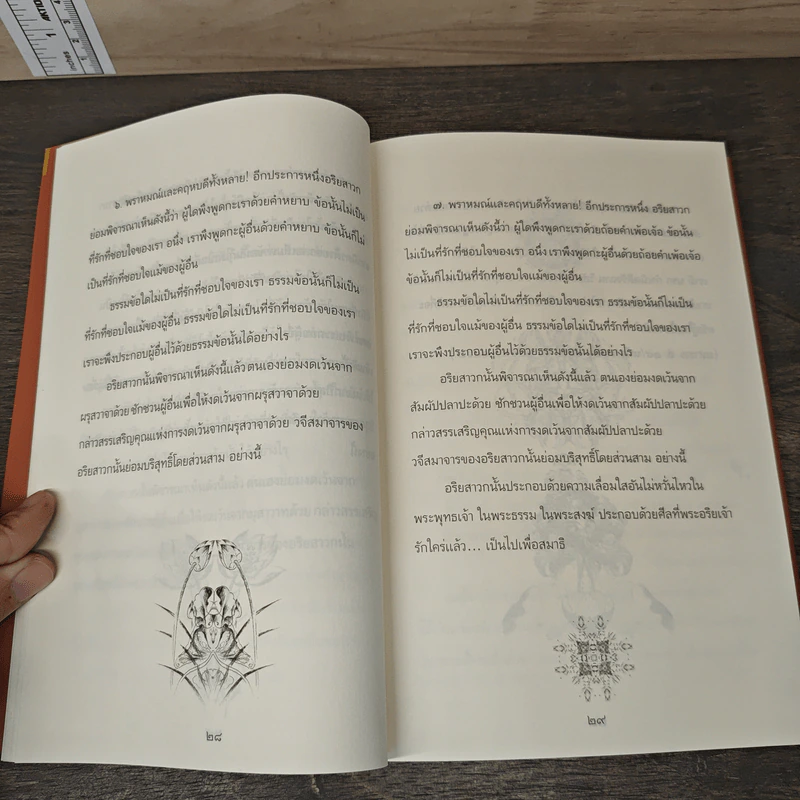 1
inches
๖. พราหมณ์และคฤหบดีทั้งหลาย! อีกประการหนึ่งอริยสาวก
ย่อมพิจารณาเห็นดังนี้ว่า ผู้ใดพึงพูดกะเราด้วยคำหยาบ ข้อนั้นไม่เป็น
ที่รักที่ชอบใจของเรา อนึ่ง เราพึงพูดกะผู้อื่นด้วยคำหยาบ ข้อนั้นก็ไม่
เป็นที่รักที่ชอบใจแม้ของผู้อื่น
ธรรมข้อใดไม่เป็นที่รักที่ชอบใจของเรา ธรรมข้อนั้นก็ไม่เป็น
ที่รักที่ชอบใจแม้ของผู้อื่น ธรรมข้อใดไม่เป็นที่รักที่ชอบใจของเรา
เราจะพึงประกอบผู้อื่นไว้ด้วยธรรมข้อนั้นได้อย่างไร
อริยสาวกนั้นพิจารณาเห็นดังนี้แล้ว ตนเองย่อมงดเว้นจาก
ผรุสวาจาด้วย ชักชวนผู้อื่นเพื่อให้งดเว้นจากผรุสวาจาด้วย
กล่าวสรรเสริญคุณแห่งการงดเว้นจากผรุสวาจาด้วย วจีสมาจารของ
อริยสาวกนั้นย่อมบริสุทธิ์โดยส่วนสาม อย่างนี้
๒๘
๗. พราหมณ์และคฤหบดีทั้งหลาย! อีกประการหนึ่ง อริยสาวก
ย่อมพิจารณาเห็นดังนี้ว่า ผู้ใดพึงพูดกะเราด้วยถ้อยคำเพ้อเจ้อ ข้อนั้น
ไม่เป็นที่รักที่ชอบใจของเรา อนึ่ง เราพึงพูดกะผู้อื่นด้วยถ้อยคำเพ้อเจ้อ
ข้อนั้นก็ไม่เป็นที่รักที่ชอบใจแม้ของผู้อื่น
ธรรมข้อใดไม่เป็นที่รักที่ชอบใจของเรา ธรรมข้อนั้นก็ไม่เป็น
ที่รักที่ชอบใจแม้ของผู้อื่น ธรรมข้อใดไม่เป็นที่รักที่ชอบใจของเรา
เราจะพึงประกอบผู้อื่นไว้ด้วยธรรมข้อนั้นได้อย่างไร
อริยสาวกนั้นพิจารณาเห็นดังนี้แล้ว ตนเองย่อมงดเว้นจาก
สัมผัปปลาปะด้วย ชักชวนผู้อื่นเพื่อให้งดเว้นจากสัมผัปปลาปะด้วย
กล่าวสรรเสริญคุณแห่งการงดเว้นจากสัมผัปปลาปะด้วย
วจีสมาจารของอริยสาวกนั้นย่อมบริสุทธิ์โดยส่วนสาม อย่างนี้
อริยสาวกนั้นประกอบด้วยความเลื่อมใสอันไม่หวั่นไหวใน
พระพุทธเจ้า ในพระธรรม ในพระสงฆ์ ประกอบด้วยศีลที่พระอริยเจ้า
รักใคร่แล้ว... เป็นไปเพื่อสมาธิ
๒๙